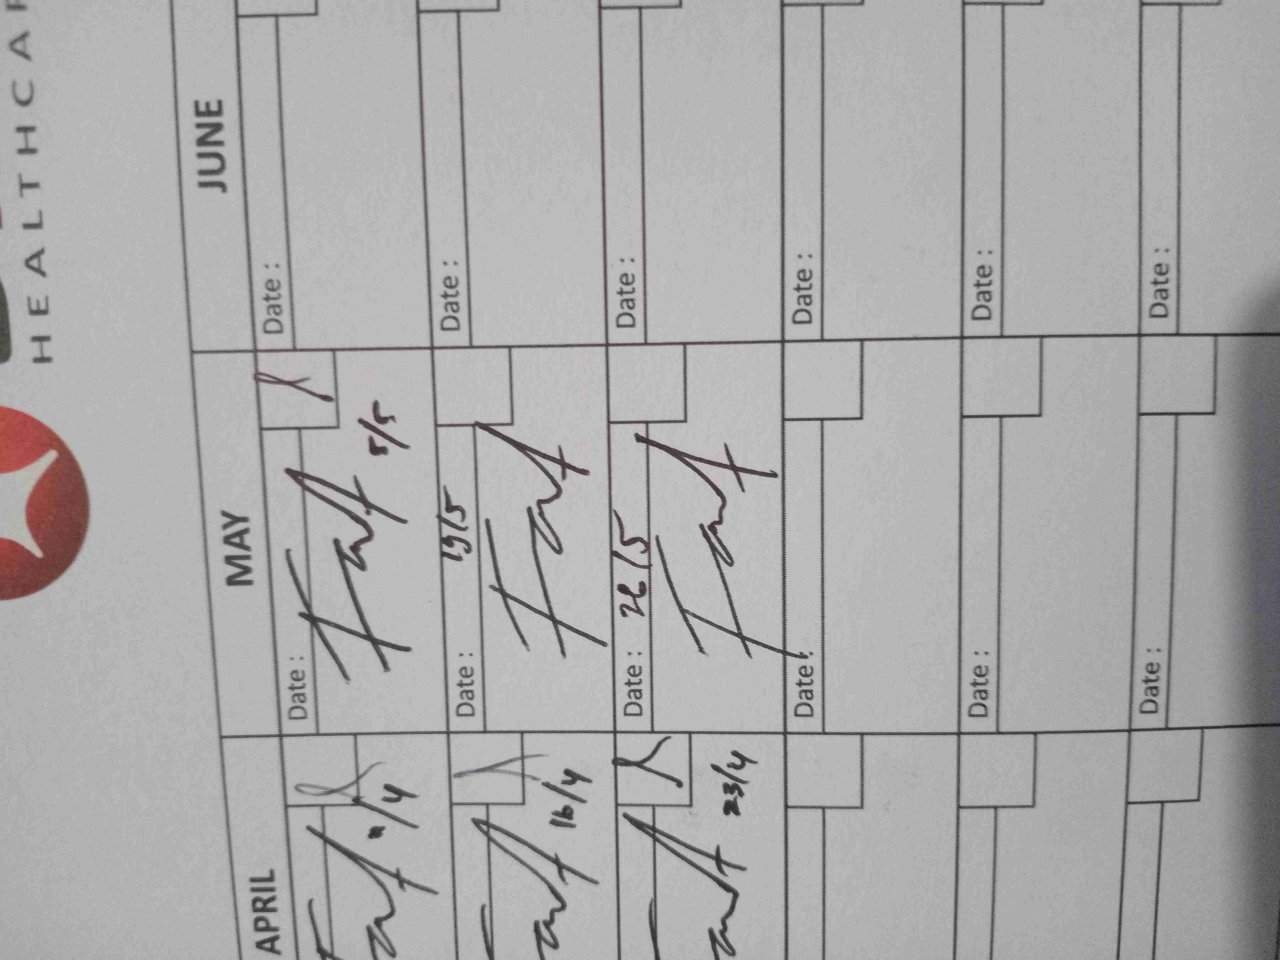 HEALTHCAR
APRIL MAY JUNE
Date : Date :
5/5
/4
Date : 19/5 Date :
16/4
Date : 26/5 Date :
23/4
Date : Date :
Date : Date :
Date : Date :